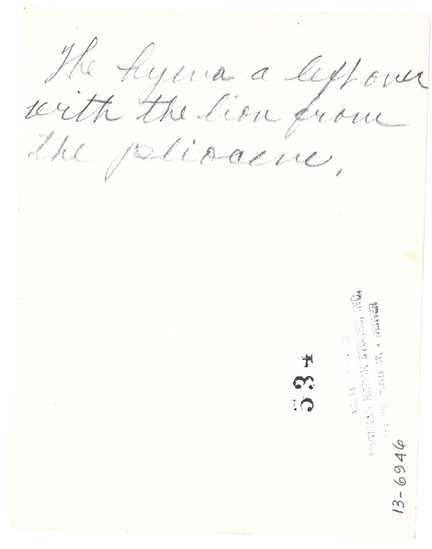 The hyena a left over
with the lion from
the pliocene.
534
13-6946